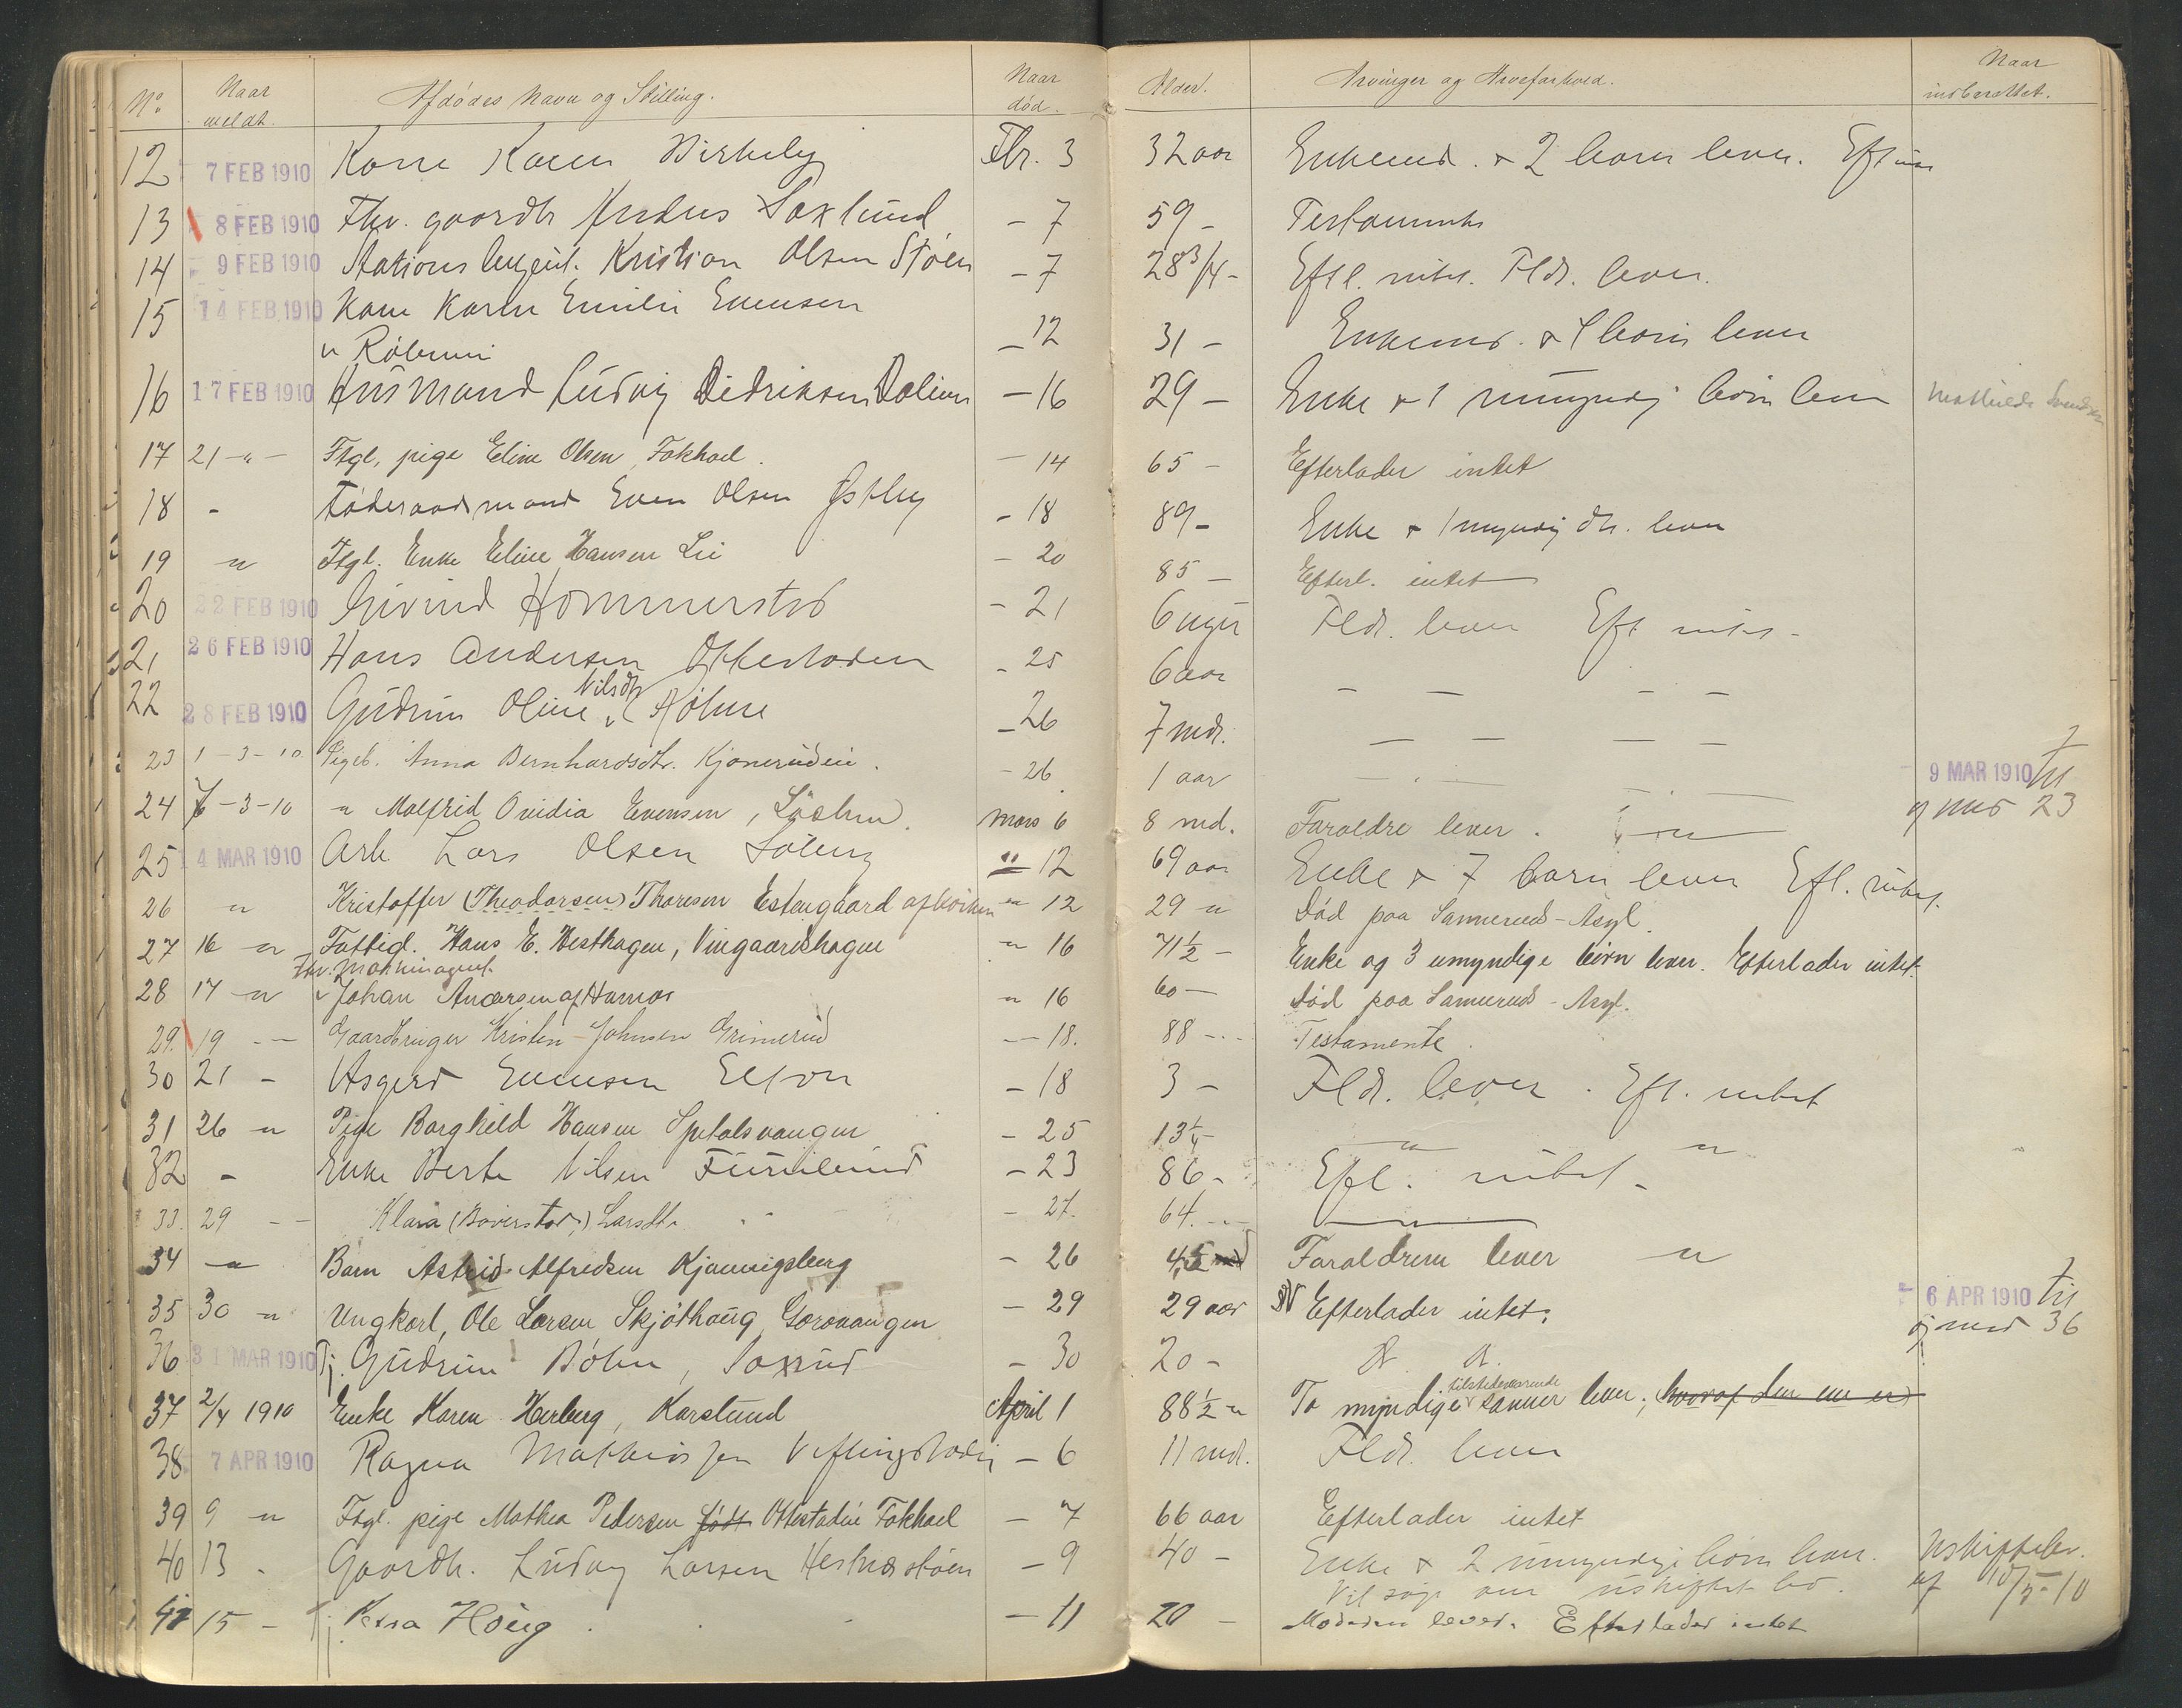 No. Naar meldt. Afdødes Navn og Stilling. Naar død. Alder. Arvinger og Arveforhold. Naar indberettet.
12 7 FEB 1910 Kone Karen Birkely Fbr. 3 32 aar Enkemd. & 2 børn lever. Eft intet
13 8 FEB 1910 Fhv. gaardbr Anders Saxlund - 7 59 - Testamente
14 9 FEB 1910 Stations betjent. Kristian Olsen Støen - 7 28 3/4 - Eftl. intet. Fldr. lever.
15 14 FEB 1910 Kone Karen Emilie Evensen
" - 12 31 - Enkemd. & 1 barn lever
16 17 FEB 1910 Husmand Ludvig Didriksen Dalien - 16 29 - Enke & 1 umyndig barn lever Mathilde Svendsen
17 21 - " - Ftgl. pige Eline Olsen, Fokhoel. - 14 65 - Efterlader intet
18 - Føderaadsmand Even Olsen Østby - 18 89 - Enke & 1 myndig dtr. lever
19 " Ftgl. Enke Eline Hansen Lie - 20 85 - Efterl. intet
20 22 FEB 1910 Eivind Hommerstad - 21 6 uger Fldr. lever Eft intet -
21 26 FEB 1910 Hans Andersen Ottestaden - 25 6 aar - - - -
22 28 FEB 1910 Gudrun Oline Nilsdtr - 26 7 mdr. - - - -
23 1-3-10 Pigeb. Anna Bernhardsdtr. Kjønerudeie. - 26. 1 aar - " - - " - 9 MAR 1910 til
24 7-3-10 " Malfrid Ovidia Evensen, Mars 6 8 md. Forældre lever. - " - og med 23
25 14 MAR 1910 Arb Lars Olsen Solberg " 12 69 aar Enke & 7 barn lever Eftl. intet.
26 " Kristoffer (Theodorsen) Thoresen Estengaard " 12 29 " Død paa Sanneruds-Asyl.
27 16 " Fattigl. Hans E. Hesthagen, Vingaardshagen " 16 71½ - Enke og 3 umyndige børn lever. Efterlader intet.
Fhv. Maskinagent.
28 17 " Johan Andersen af Hamar " 16 60 - Død paa Sanneruds-Asyl.
29. 19 - - Gaardbruger Kristen Johnsen Grimerud - 18. 88 - Testamente.
30 21 - Asgerd Evensen - 18 3 - Fldr. lever. Eft. intet
31 26 " Pige Borghild Hansen Spitalsvangen - 25 13¼ - " "
32 - Enke Berte Nilsen Furulund - 23 86 - Eftl. intet -
33. 29 - - Klara (Baverstad,) Larsdtr. - 27. 64. - " -
34 " Barn Astrid Alfredsen Kjønnigsberg - 26 4,5 md Forældrene lever "
35 30 " Ungkarl, Ole Larsen Skjølhaug, Gorovangen - 29 29 aar Efterlader intet. 6 APR 1910 til
36 31 MAR 1910 Tj. Gudrun Bøhn, Saxrud - 30 20 - D. D. og med 36
37 2/4 1910 Enke Karen Herberg, Karslund April 1 88½ " To myndige tilstedeværende sønner lever; hvoraf den ene er
38 7 APR 1910 Ragna Mathiassen Viflingstadeie - 6 11 md. Fldr. lever
39 9 " Ftgl. pige Mathea Pedersen født Ottestadeie Fokhoel - 7 66 aar Efterlader intet
40 13 - Gaardbr. Ludvig Larsen Hestnæsstøen - 9 40 - Enke & 2 umyndige børn lever. Uskiftebev.
Vil søge om uskiftet bo. af 10/5-10
41 15 - Tj. Haug. - 11 20 - Moderen lever. Efterlader intet